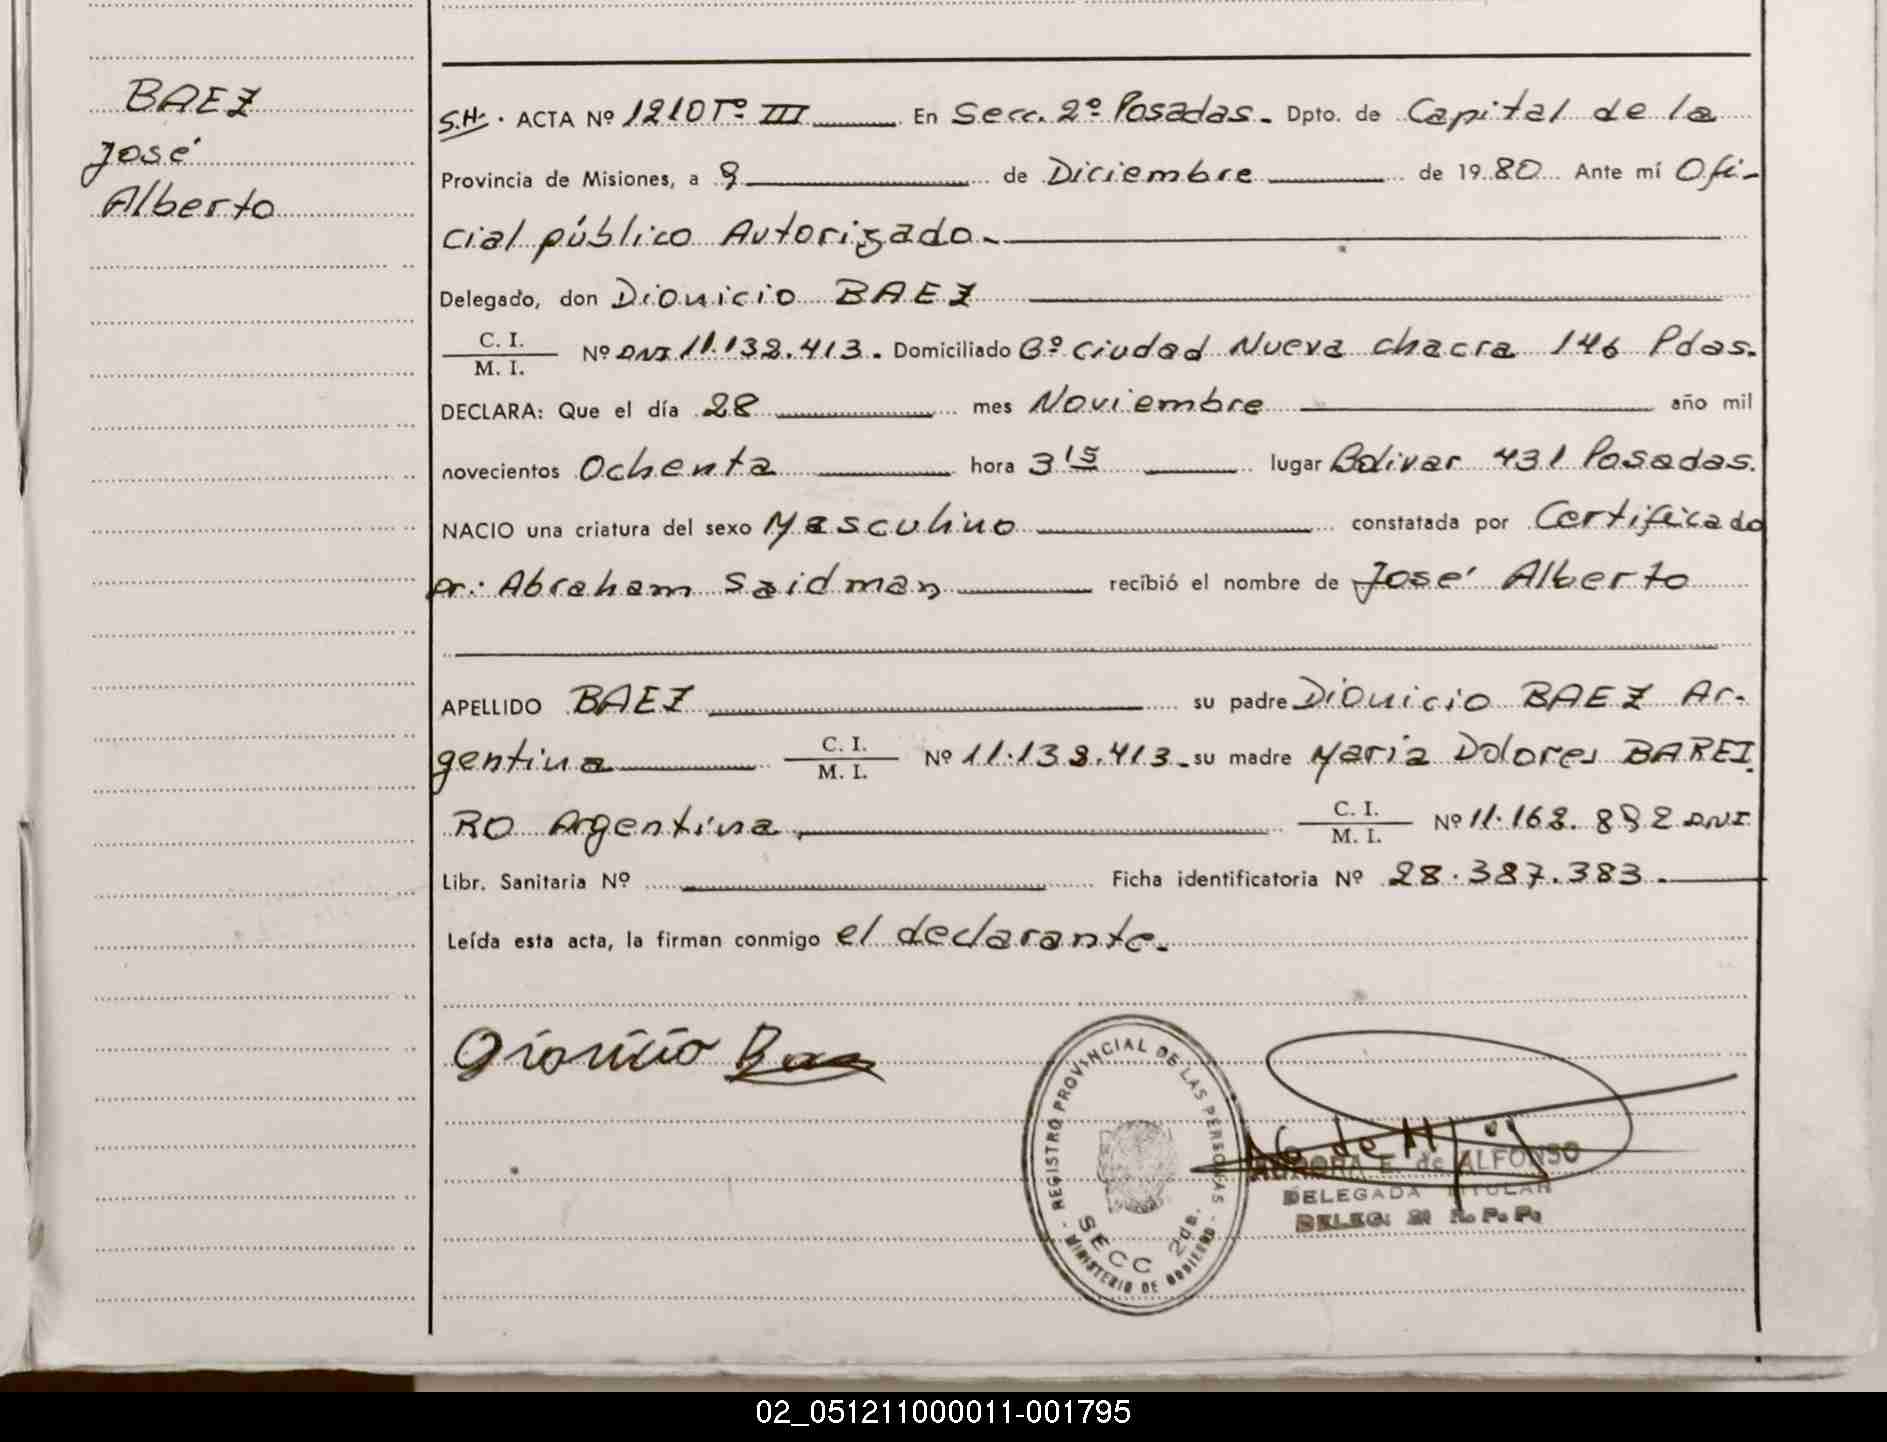 BAEZ
José
Alberto
S.H. ACTA Nº 1210 Tº III En Secc. 2º Posadas. Dpto. de Capital de la
Provincia de Misiones, a 9 de Diciembre de 1980 Ante mí Ofi-
cial público Autorizado.
Delegado, don Dionicio BAEZ
C. I.
M. I. Nº DNI 11.138.413. Domiciliado Bº Ciudad Nueva chacra 146 Pdas.
DECLARA: Que el día 28 mes Noviembre año mil
novecientos Ochenta hora 3 15 lugar Bolivar 431 Posadas.
NACIO una criatura del sexo Masculino constatada por Certificado
Dr: Abraham Saidman recibió el nombre de José Alberto
APELLIDO BAEZ su padre Dionicio BAEZ Ar-
gentina C. I.
M. I. Nº 11.138.413. su madre Maria Dolores BAREI
RO Argentina. C. I.
M. I. Nº 11.168.892 DNI
Libr. Sanitaria Nº Ficha identificatoria Nº 28.387.383.
Leída esta acta, la firman conmigo el declarante.
Dionicio Baez
- REGISTRO PROVINCIAL DE LAS PERSONAS -
MINISTERIO DE GOBIERNO
SECC 2da.
AURORA E. de ALFONSO
DELEGADA TITULAR
DELEG: 2ª R. P. P.
02_051211000011-001795